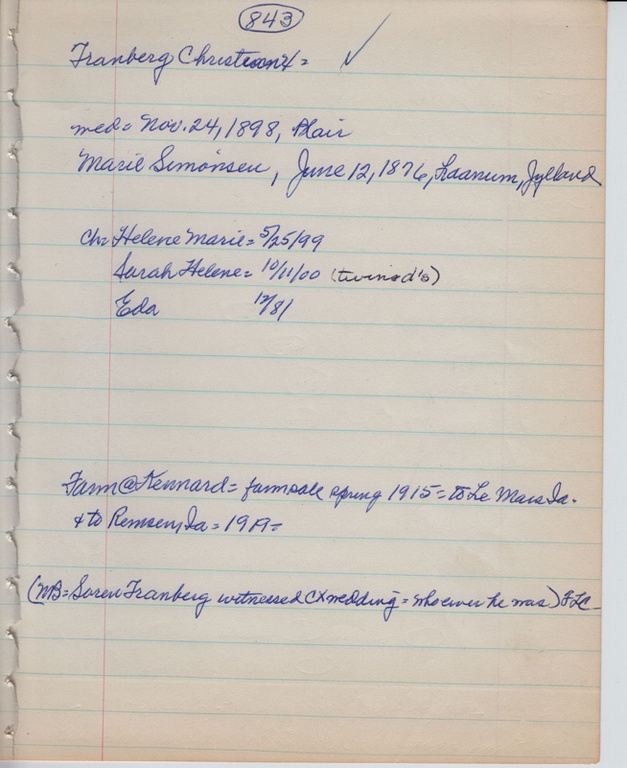 843
Franberg Christian =
med = Nov. 24, 1898, Blair
Marie Simonsen, June 12, 1876, Laanum, Jylland
Ch = Helene Marie = 5/25/99
Sarah Helene = 10/11/00 (twins d's)
Eda 12/81
Farm @ Kennard = farm sale spring 1915 = to Le Mars Ia.
& to Remsen, Ia = 1919 =
(NB = Soren Franberg witnessed CX wedding = whoever he was) FLC